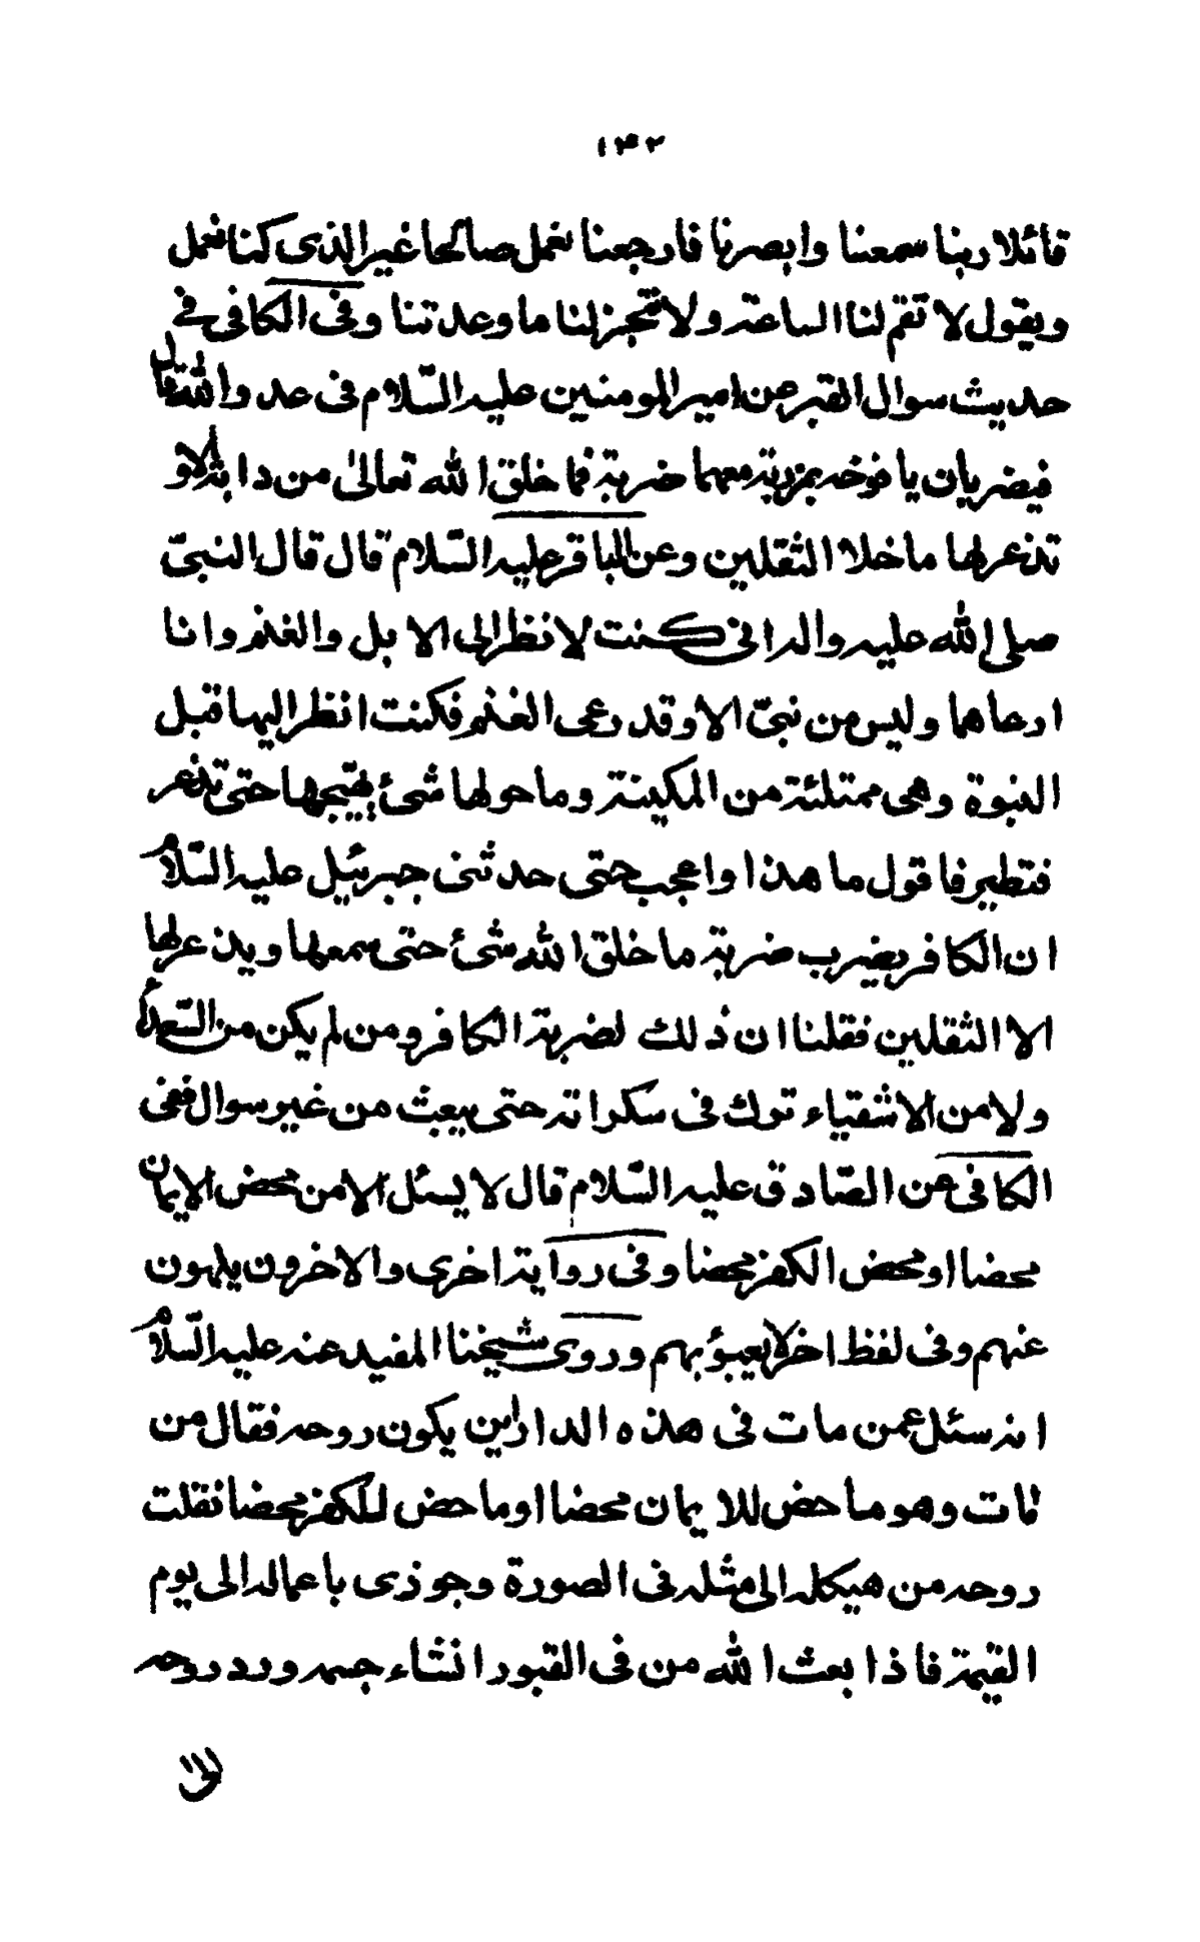 ١٤٢
قائلا ربنا سمعنا وابصرنا فارجعنا نعمل صالحا غير الذى كنا نعمل
ويقول لا تقم لنا الساعة ولا تنجز لنا ما وعدتنا وفى الكافى فى
حديث سوال القبر عن امير المومنين عليه السّلام فى عدو الله قال
فيضربان يافوخه بمزربة معهما ضربة فما خلق الله تعالىٰ من دابة الا و
تذعر لها ما خلا الثقلين وعن الباقر عليه السّلام قال قال النبىّ
صلى الله عليه واله انى كنت لانظر الى الابل والغنم وانا
ارعاهما وليس من نبىّ الا وقد رعى الغنم فكنت انظر اليها قبل
النبوة وهى ممتلئة من المكينة وما حولها شئ يهيّجها حتى تذعر
فتطير فاقول ما هذا واعجب حتى حدثنى جبرئيل عليه السّلام
ان الكافر يضرب ضربة ما خلق الله شئ حتى سمعها ويذعر لها
الا الثقلين فقلنا ان ذلك لضربة الكافر ومن لم يكن من السّعداء
ولا من الاشقياء ترك فى سكراته حتى يبعث من غير سوال ففى
الكافى عن الصّادق عليه السّلام قال لا يسئل الا من محض الايمان
محضا او محض الكفر محضا وفى رواية اخرى والاخرون يلهون
عنهم وفى لفظ اخر لا يعبؤ بهم وروى شيخنا المفيد عنه عليه السّلام
انه سئل عمن مات فى هذه الدار اين يكون روحه فقال من
مات وهو ماحض للايمان محضا او ماحض للكفر محضا نقلت
روحه من هيكله الى مثله فى الصورة وجوزى باعماله الى يوم
القيمة فاذا بعث الله من فى القبور انشاء جسمه ورد روحه
الى